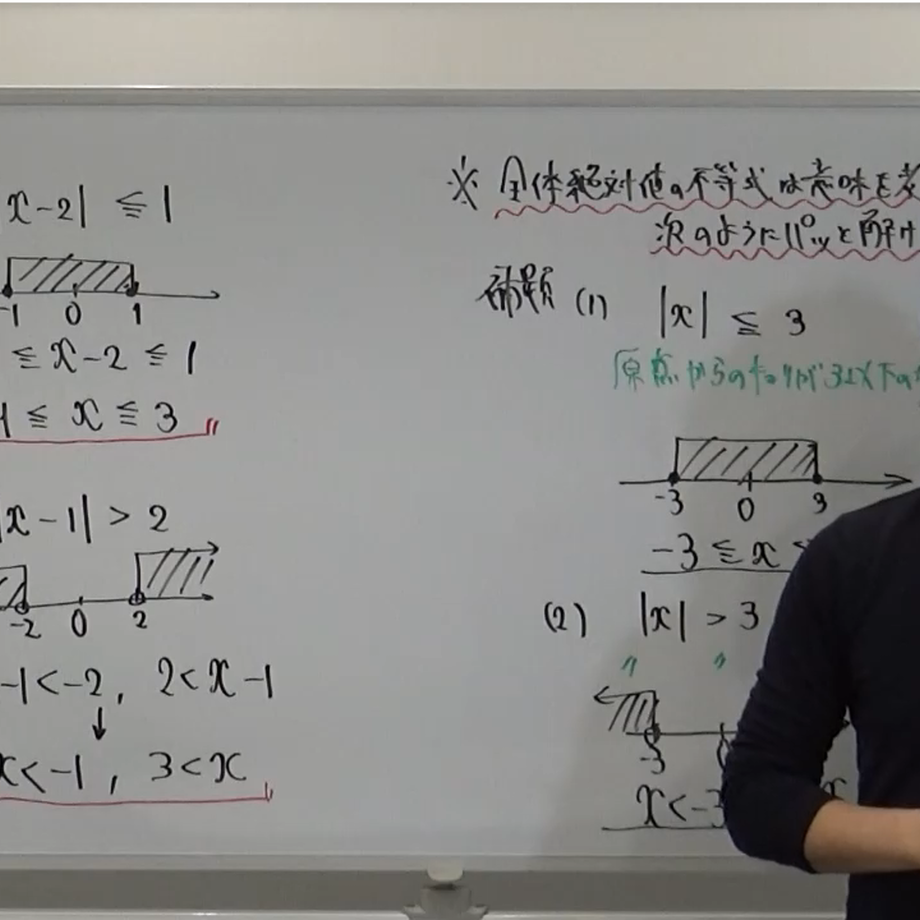 x-2| ≦ 1
-1 0 1
≦ x-2 ≦ 1
1 ≦ x ≦ 3
|x-1| > 2
-2 0 2
-1<-2, 2<x-1
↓
x<-1, 3<x
※ 全体絶対値の不等式は意味を考
次のようにパッと解け
補題 (1) |x| ≦ 3
原点からのキョリが3以下の
-3 0 3
-3 ≦ x ≦
(2) |x| > 3
〃 〃
-3
x<-3